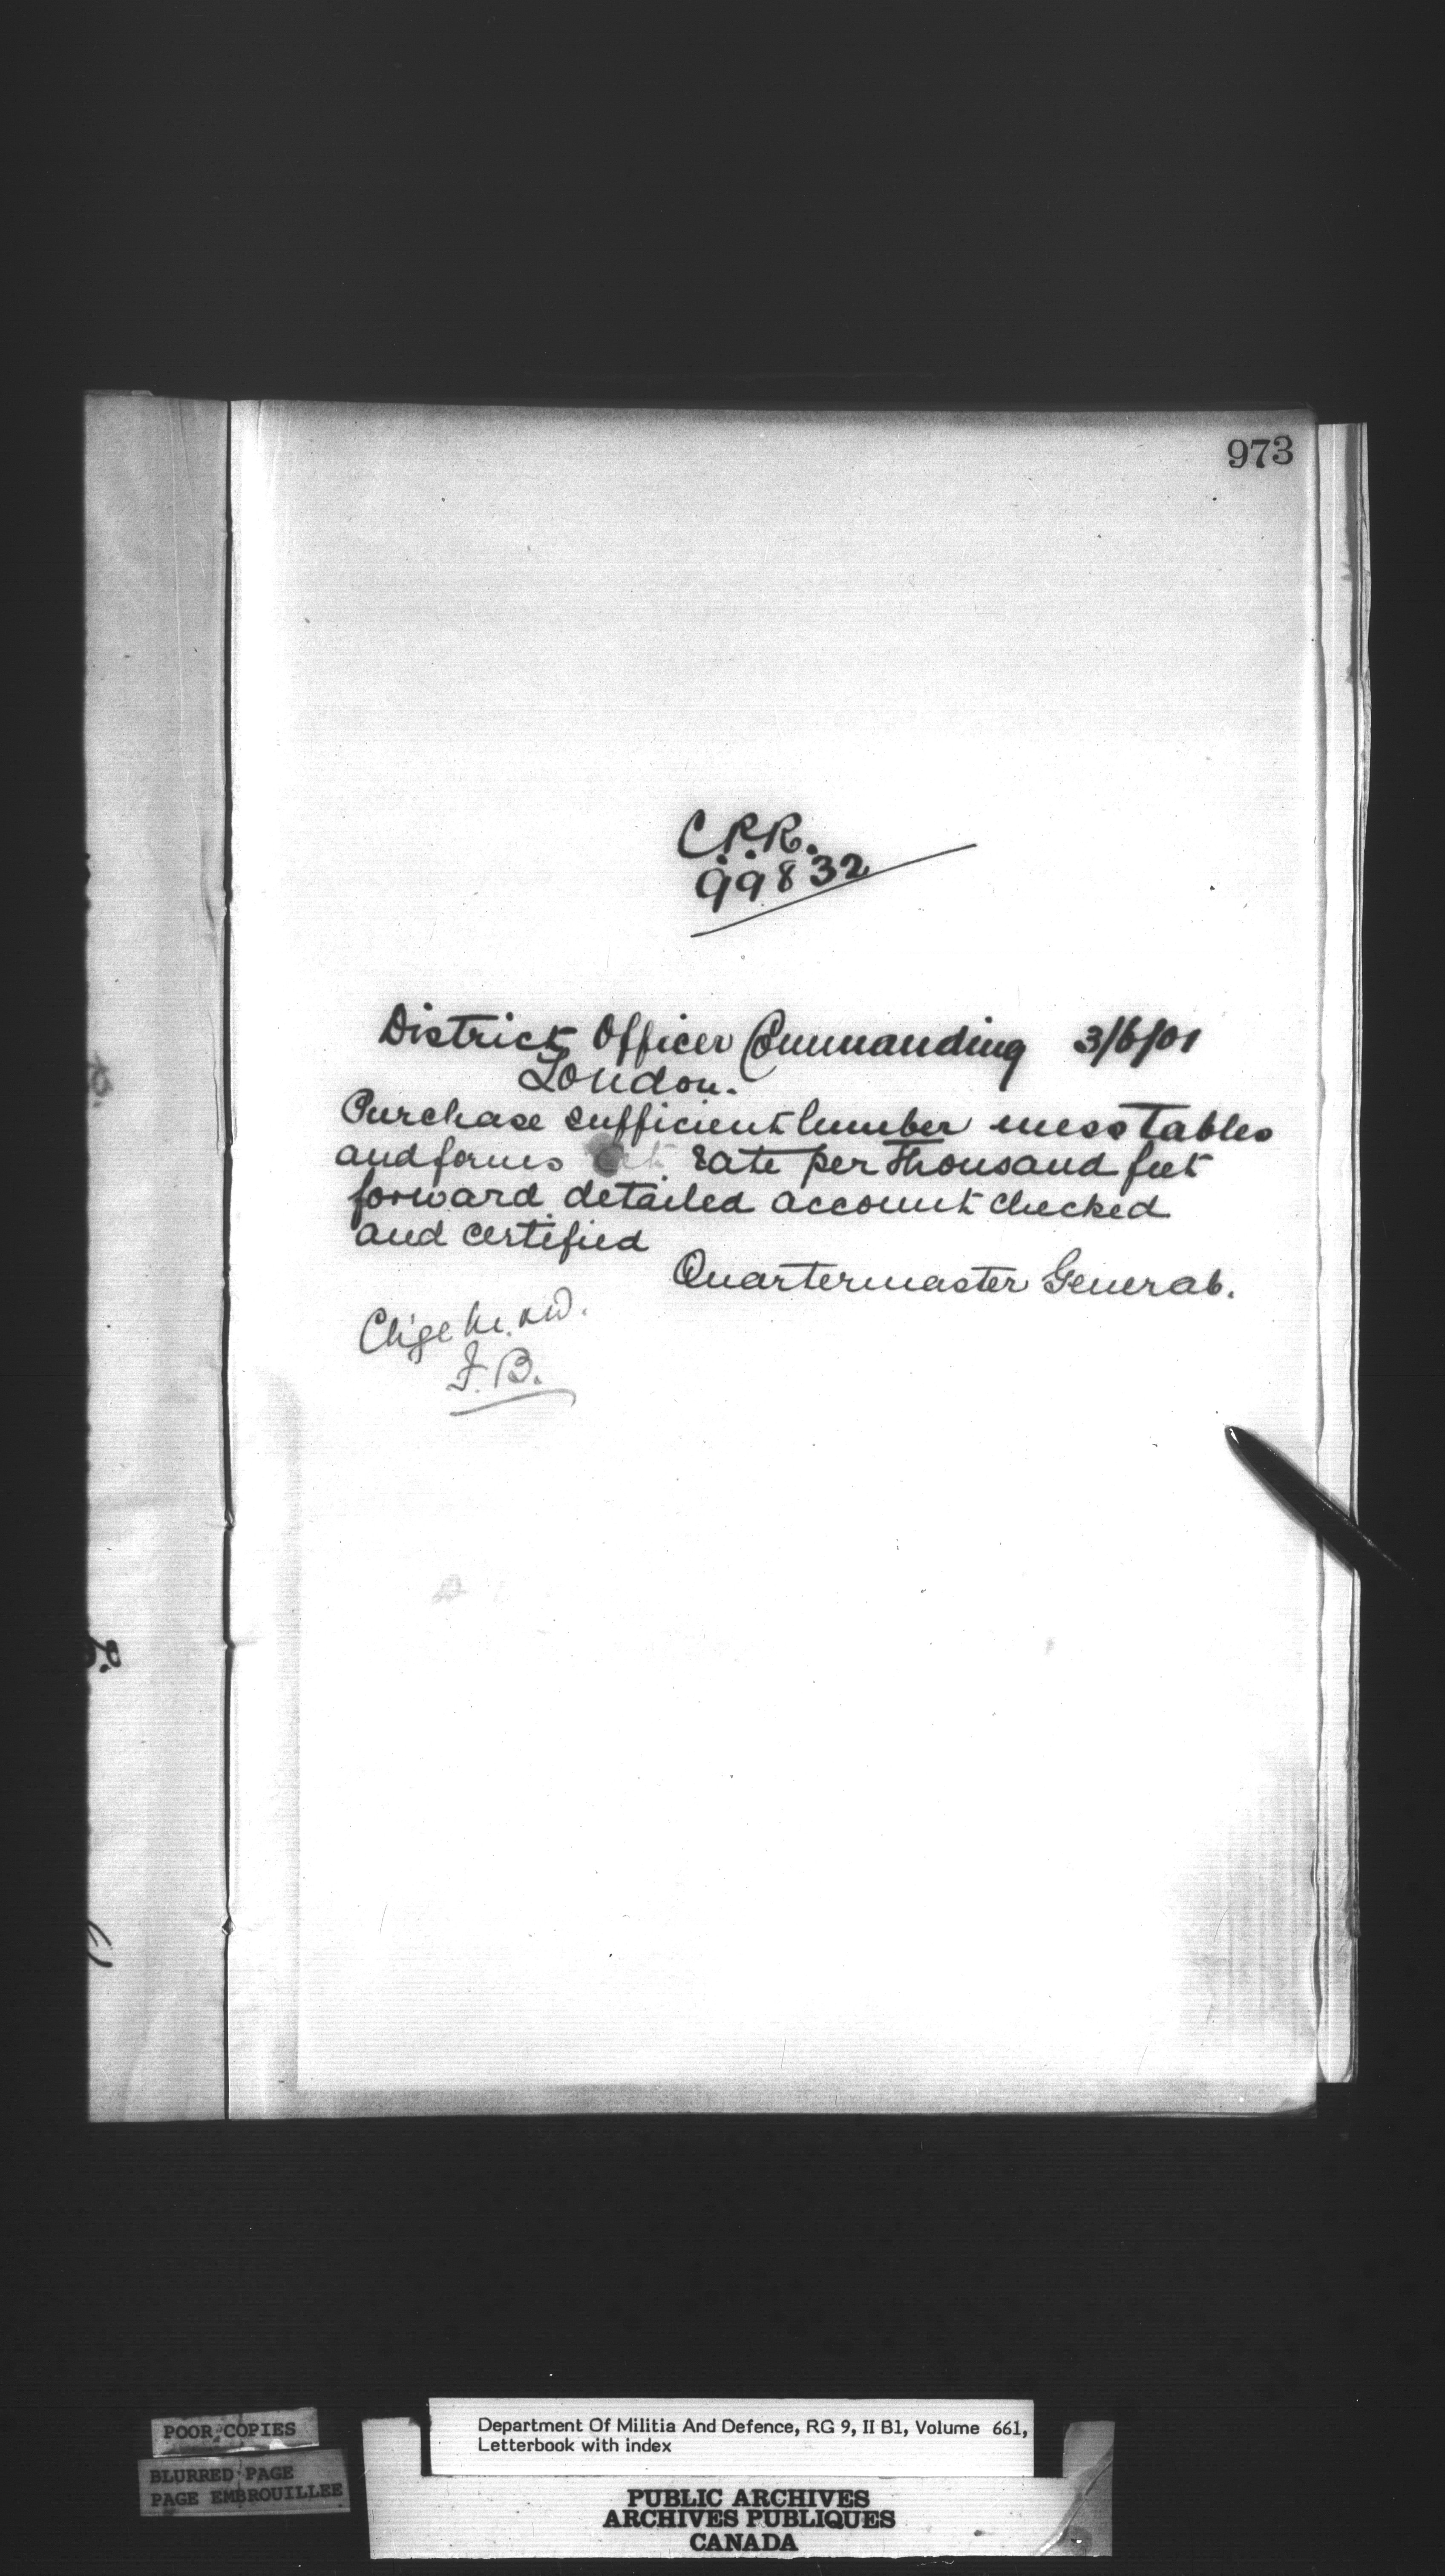 973
C.P.R.
99832
District Officer Commanding 3/6/01
London.
Purchase sufficient lumber mess tables
and forms at rate per thousand feet
forward detailed account checked
and certified
Quartermaster General.
Chge M. & D.
F. B.
POOR COPIES
BLURRED PAGE
PAGE EMBROUILLEE
Department Of Militia And Defence, RG 9, II B1, Volume 661,
Letterbook with index
PUBLIC ARCHIVES
ARCHIVES PUBLIQUES
CANADA